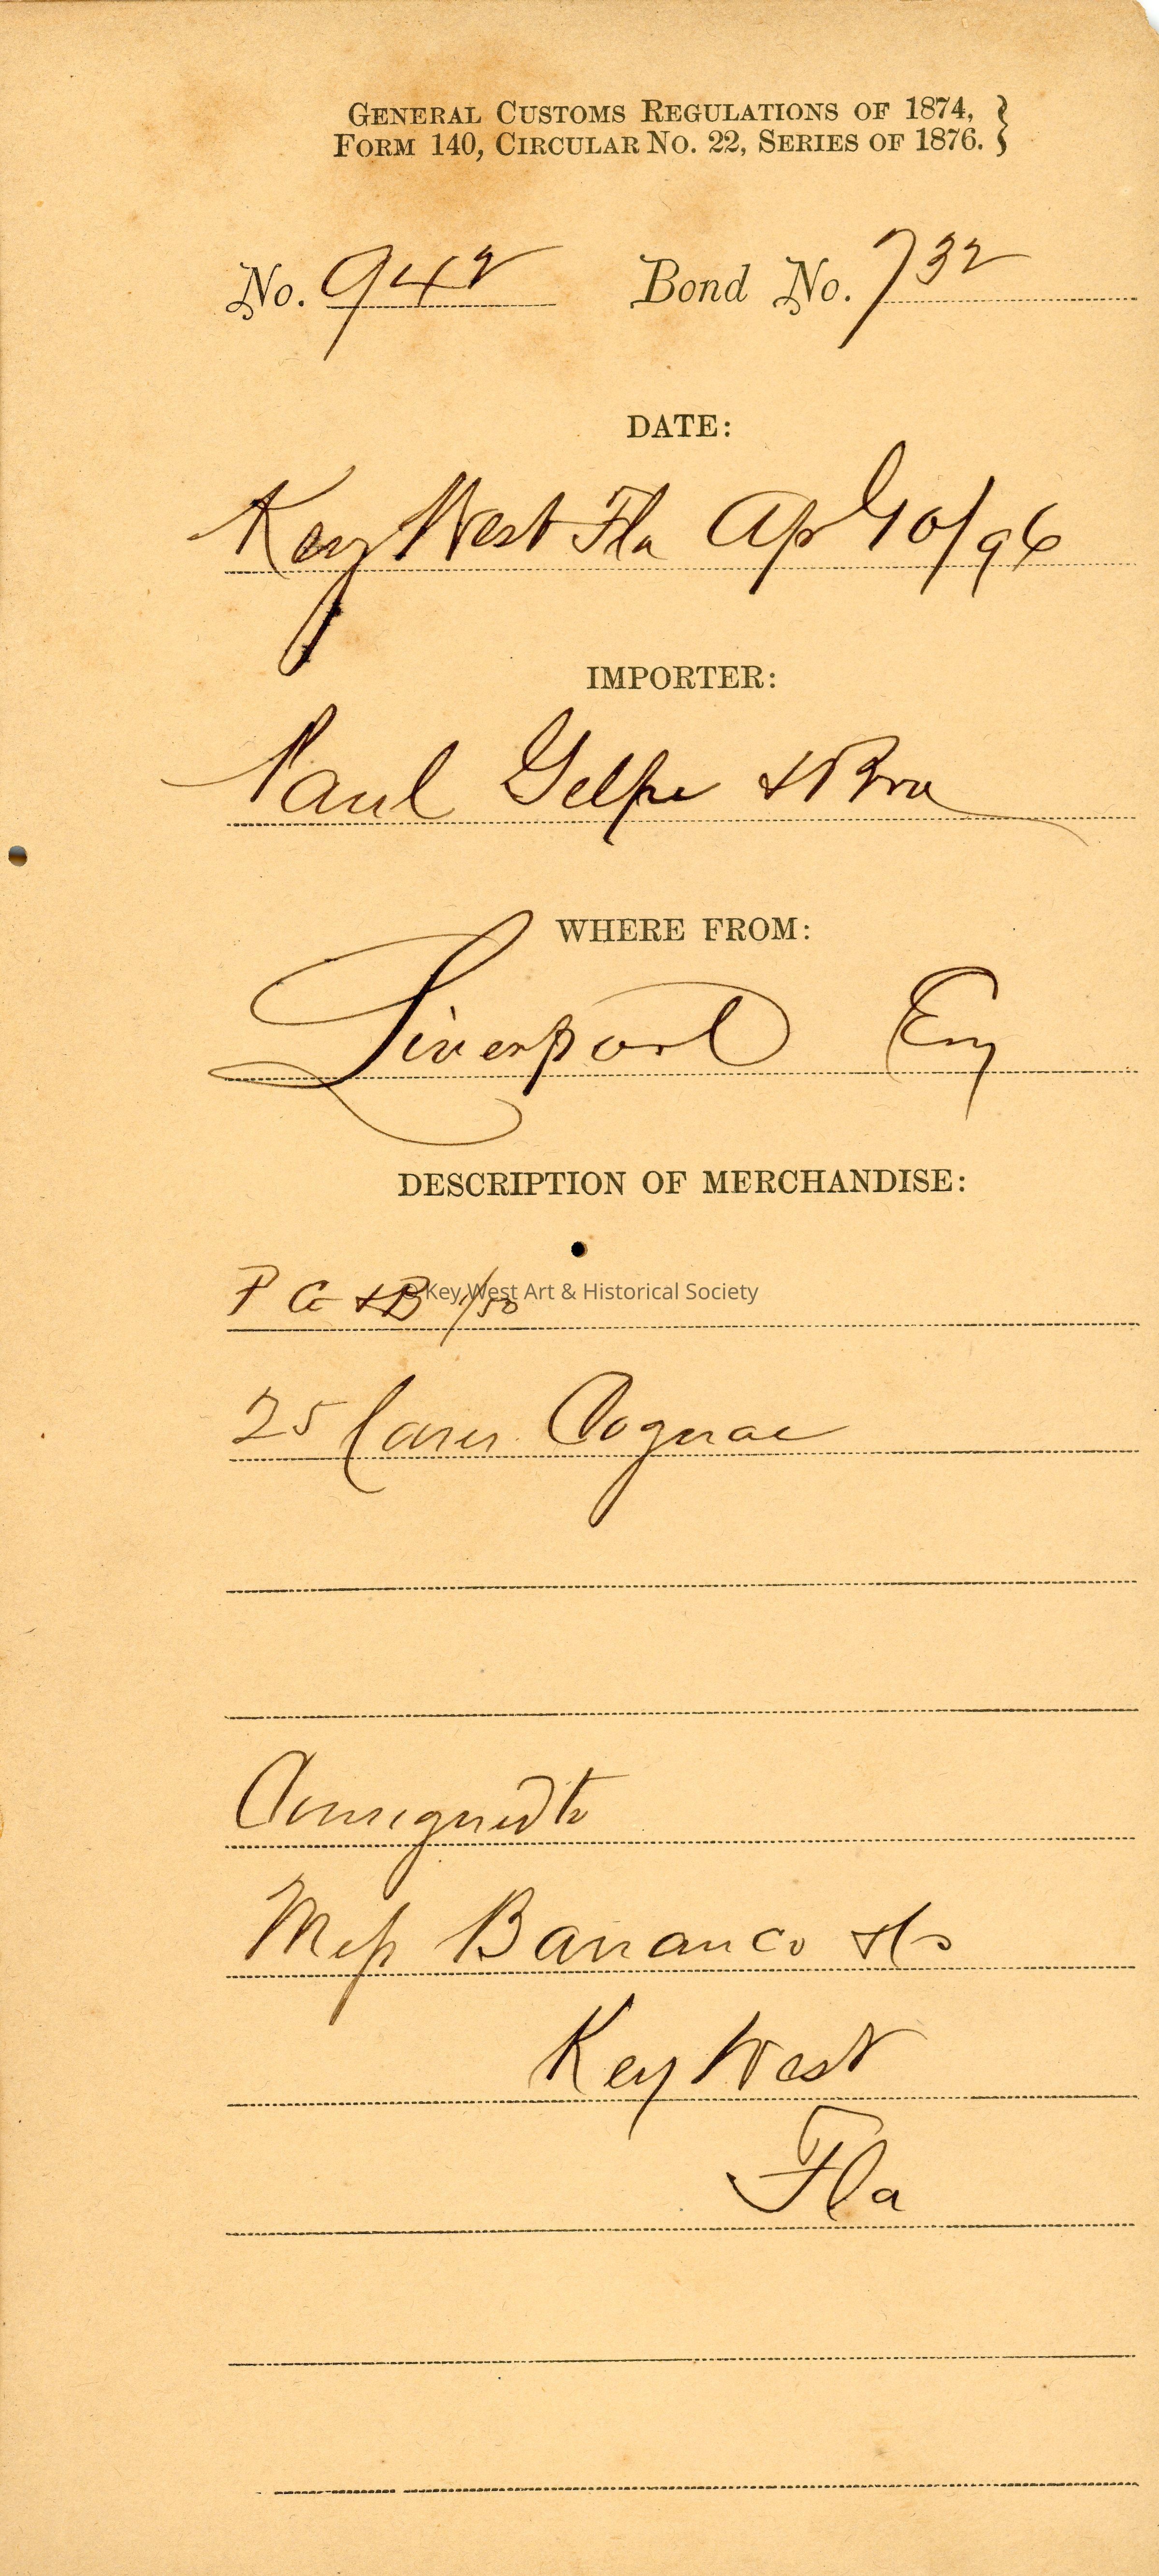 GENERAL CUSTOMS REGULATIONS OF 1874,
FORM 140, CIRCULAR No. 22, SERIES OF 1876.
No. 942 Bond No. 732
DATE:
Key West Fla Apl 10/96
IMPORTER:
Paul Gelpe & Bro
WHERE FROM:
Liverpool Eng
DESCRIPTION OF MERCHANDISE:
P G & B 1/50
© Key West Art & Historical Society
25 Cases Cognac
Consigned to
Mess Barranco & Co
Key West
Fla